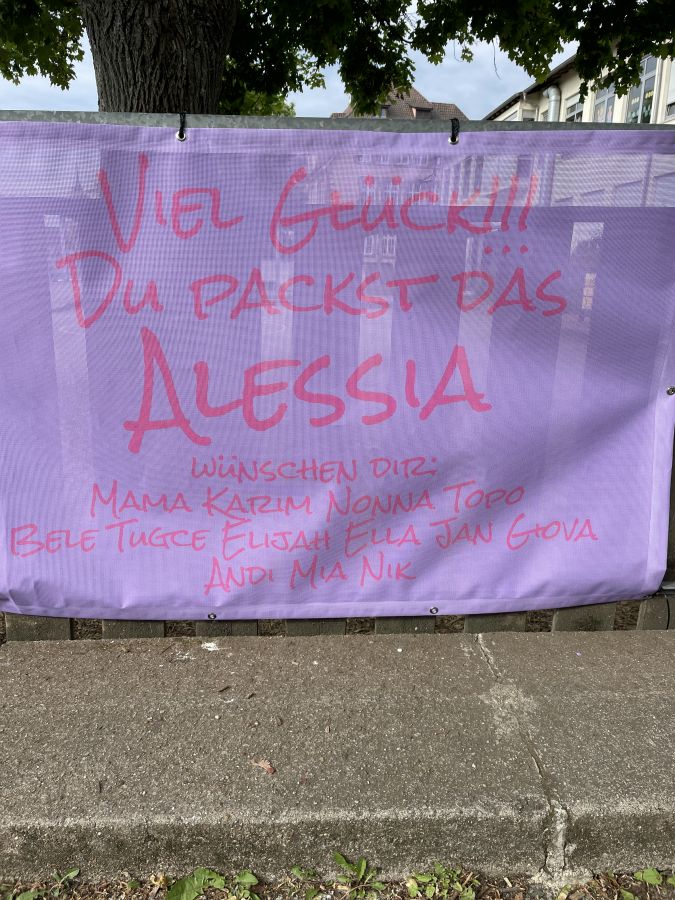 Viel Glück!!!
Du packst das
Alessia
wünschen dir:
Mama Karim Nonna Topo
Bele Tugce Elijah Ella Jan Giova
Andi Mia Nik